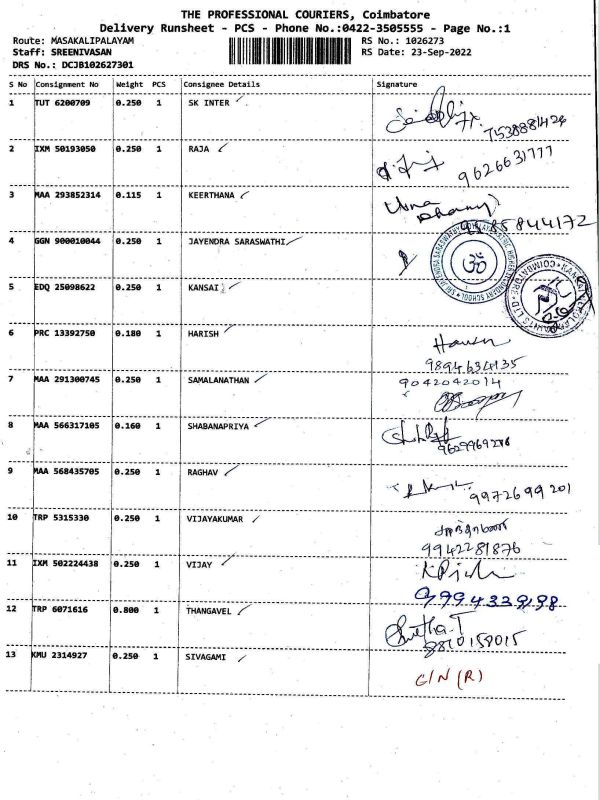 THE PROFESSIONAL COURIERS, Coimbatore
Delivery Runsheet - PCS - Phone No.:0422-3505555 - Page No.:1
Route: MASAKALIPALAYAM RS No.: 1026273
Staff: SREENIVASAN RS Date: 23-Sep-2022
DRS No.: DCJB102627301
S No Consignment No Weight PCS Consignee Details Signature
1 TUT 6200709 0.250 1 SK INTER
7538881424
2 IXM 50193050 0.250 1 RAJA
9626631777
3 MAA 293852314 0.115 1 KEERTHANA
Uma
85844172
4 GGN 900010044 0.250 1 JAYENDRA SARASWATHI
5 EDQ 25098622 0.250 1 KANSAI
6 PRC 13392750 0.180 1 HARISH
9894634135
7 MAA 291300745 0.250 1 SAMALANATHAN 9042042014
8 MAA 566317105 0.160 1 SHABANAPRIYA
9 MAA 568435705 0.250 1 RAGHAV
9972699201
10 TRP 5315330 0.250 1 VIJAYAKUMAR
9942281876
11 IXM 502224438 0.250 1 VIJAY
9994339198
12 TRP 6071616 0.800 1 THANGAVEL
Swetha.T
8870158015
13 KMU 2314927 0.250 1 SIVAGAMI
G/N (R)